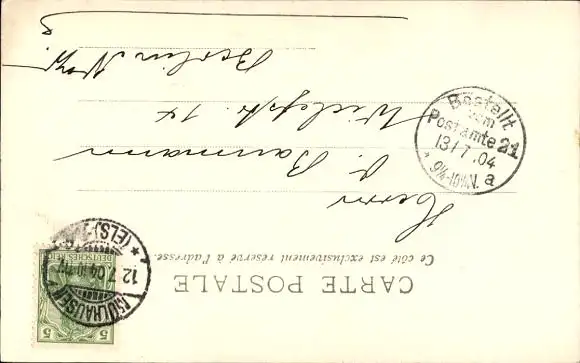 CARTE POSTALE
Ce côté est exclusivement réservé à l'adresse.
Herrn
O. Baumann
14
Berlin N.W.
Bestellt
vom
Postamte 21
13/7.04
9¼-10½V.
a
MÜLHAUSEN
12.7.04
(ELS)
DEUTSCHES REICH
5
5